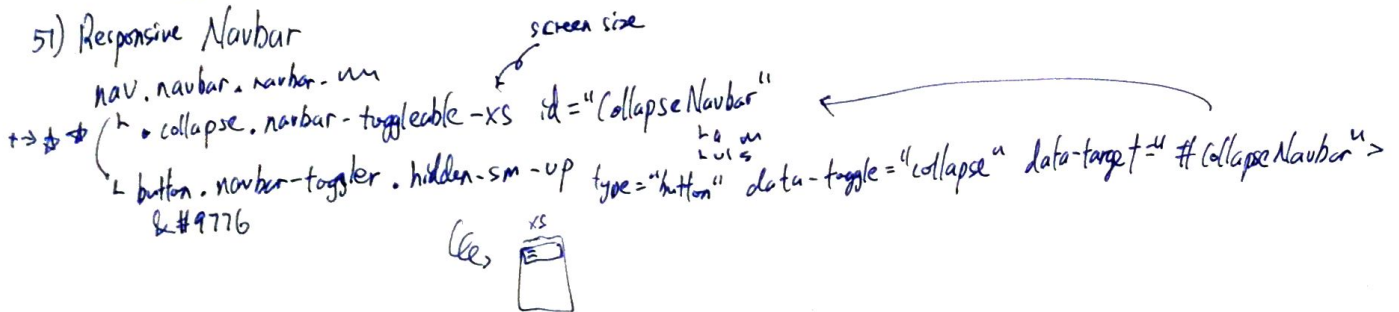 51) Responsive Navbar
screen size
nav.navbar.navbar-
.collapse.navbar-toggleable-xs id="CollapseNavbar"
button.navbar-toggler.hidden-sm-up type="button" data-toggle="collapse" data-target="#CollapseNavbar">
&#9776
xs